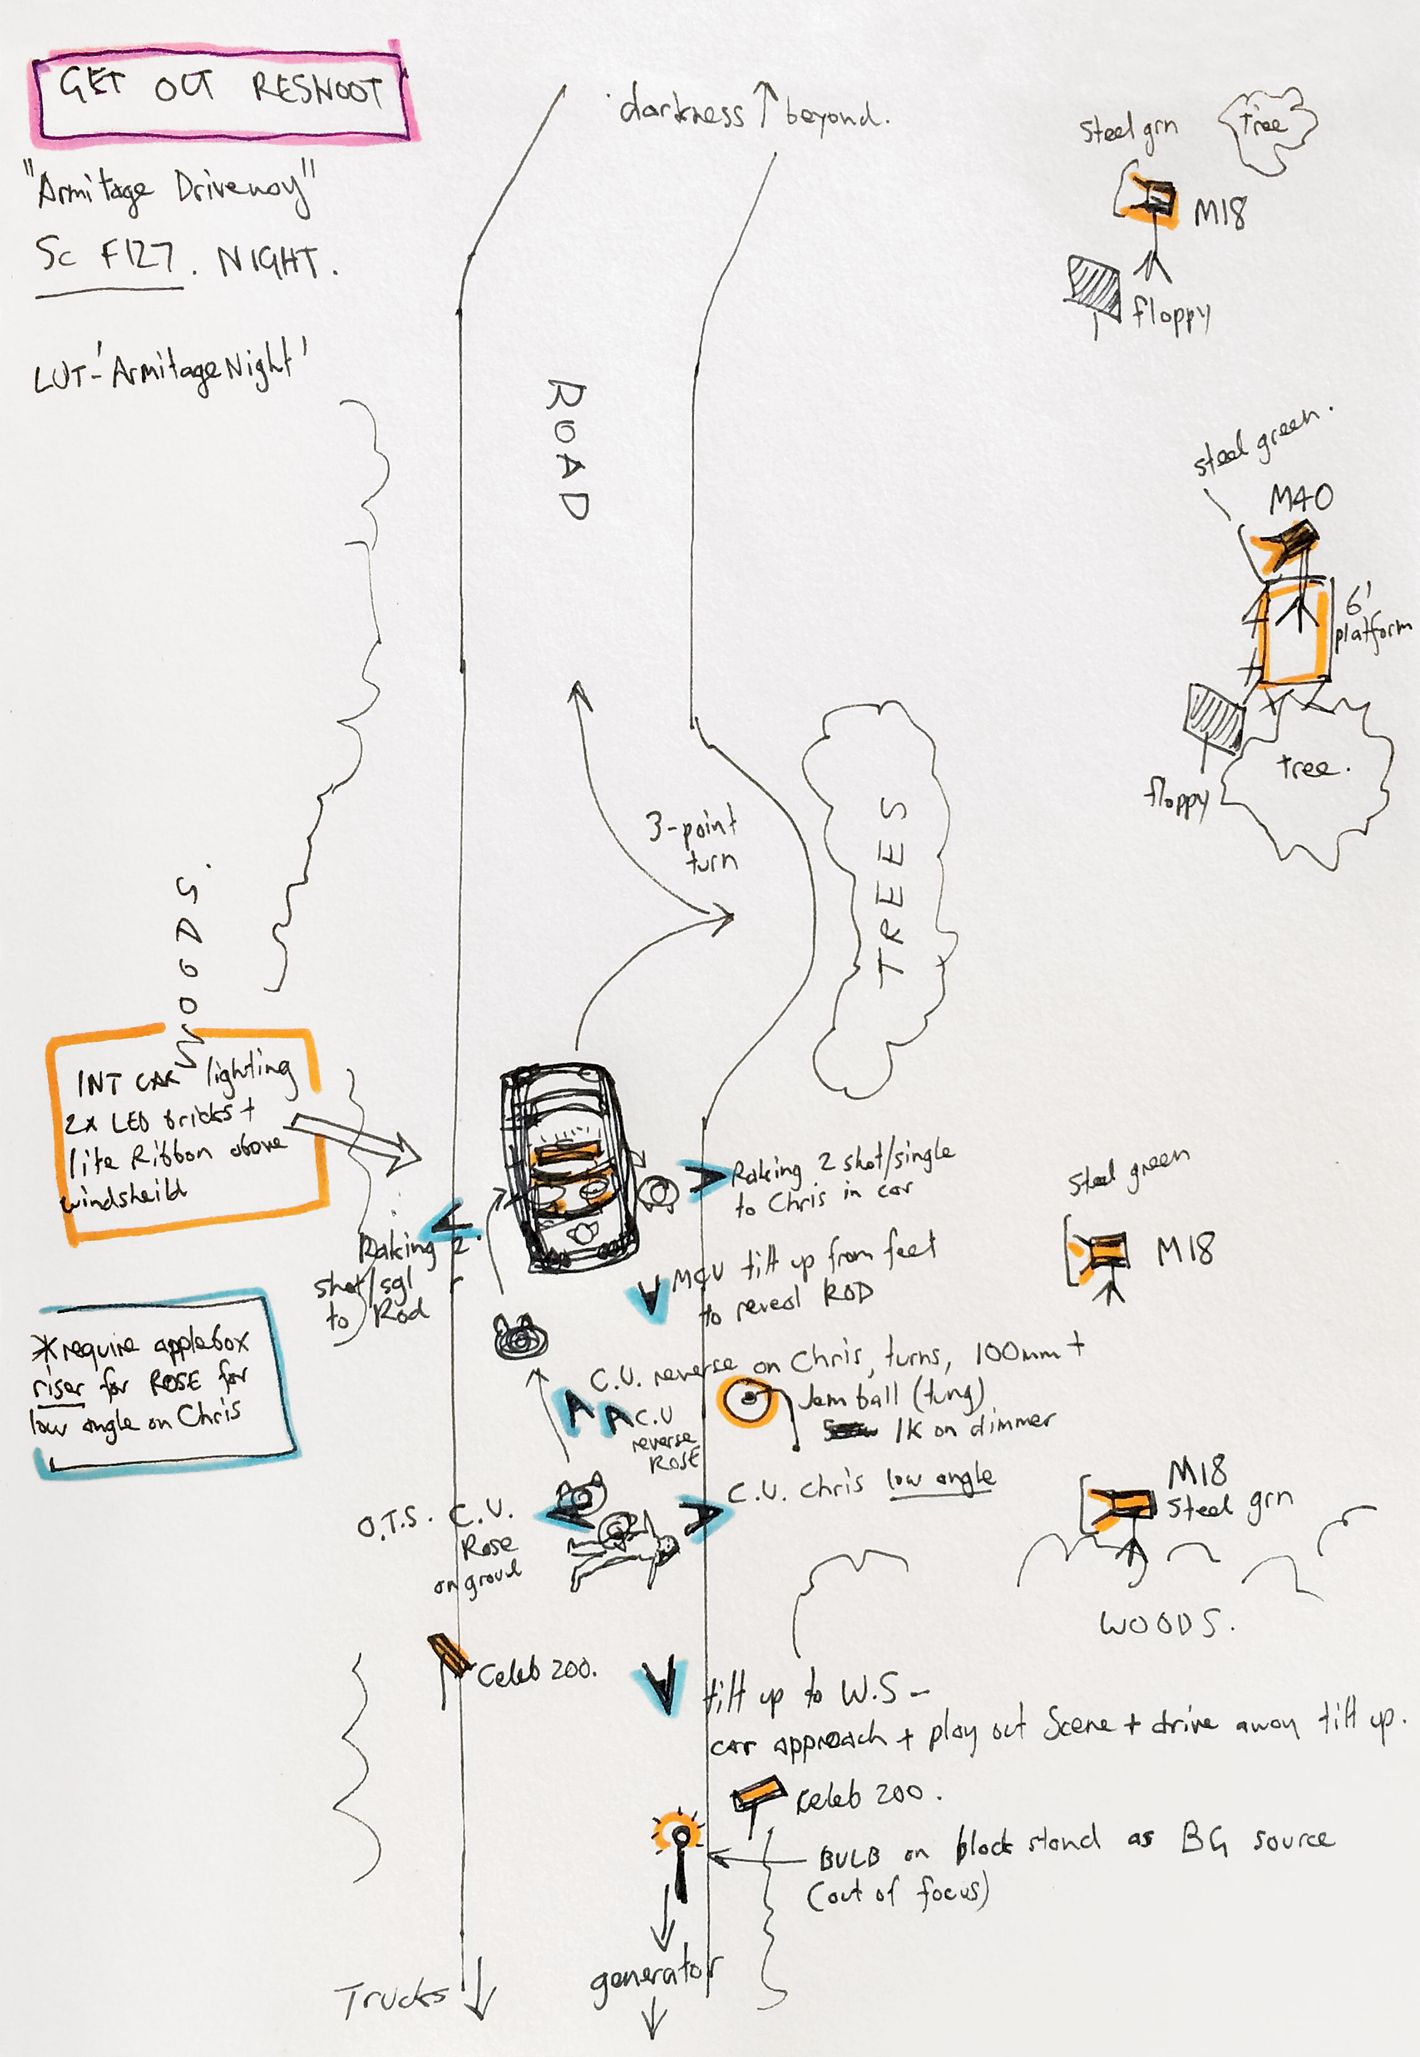 GET OUT RESHOOT
"Armitage Driveway"
Sc F127. NIGHT.
LUT-'ArmitageNight'
darkness beyond.
steel grn
tree
M18
floppy
ROAD
steel green.
M40
6'
platform
floppy
tree.
3-point
turn
TREES
WOODS.
INT CAR lighting
2x LED bricks +
lite Ribbon above
windsheild
Raking 2 shot/single
to Chris in car
Raking 2
shot/sgl
to Rod
MCU tilt up from feet
to reveal ROD
Steel green
M18
*require applebox
riser for ROSE for
low angle on Chris
C.U. reverse on Chris, turns, 100mm +
C.U
reverse
ROSE
Jem ball (tung)
1K on dimmer
C.U. Chris low angle
M18
Steel grn
O.T.S. C.U.
Rose
on groud
WOODS.
Celeb 200.
tilt up to W.S -
car approach + play out Scene + drive away tilt up.
Celeb 200.
BULB on black stand as BG source
(out of focus)
generator
Trucks